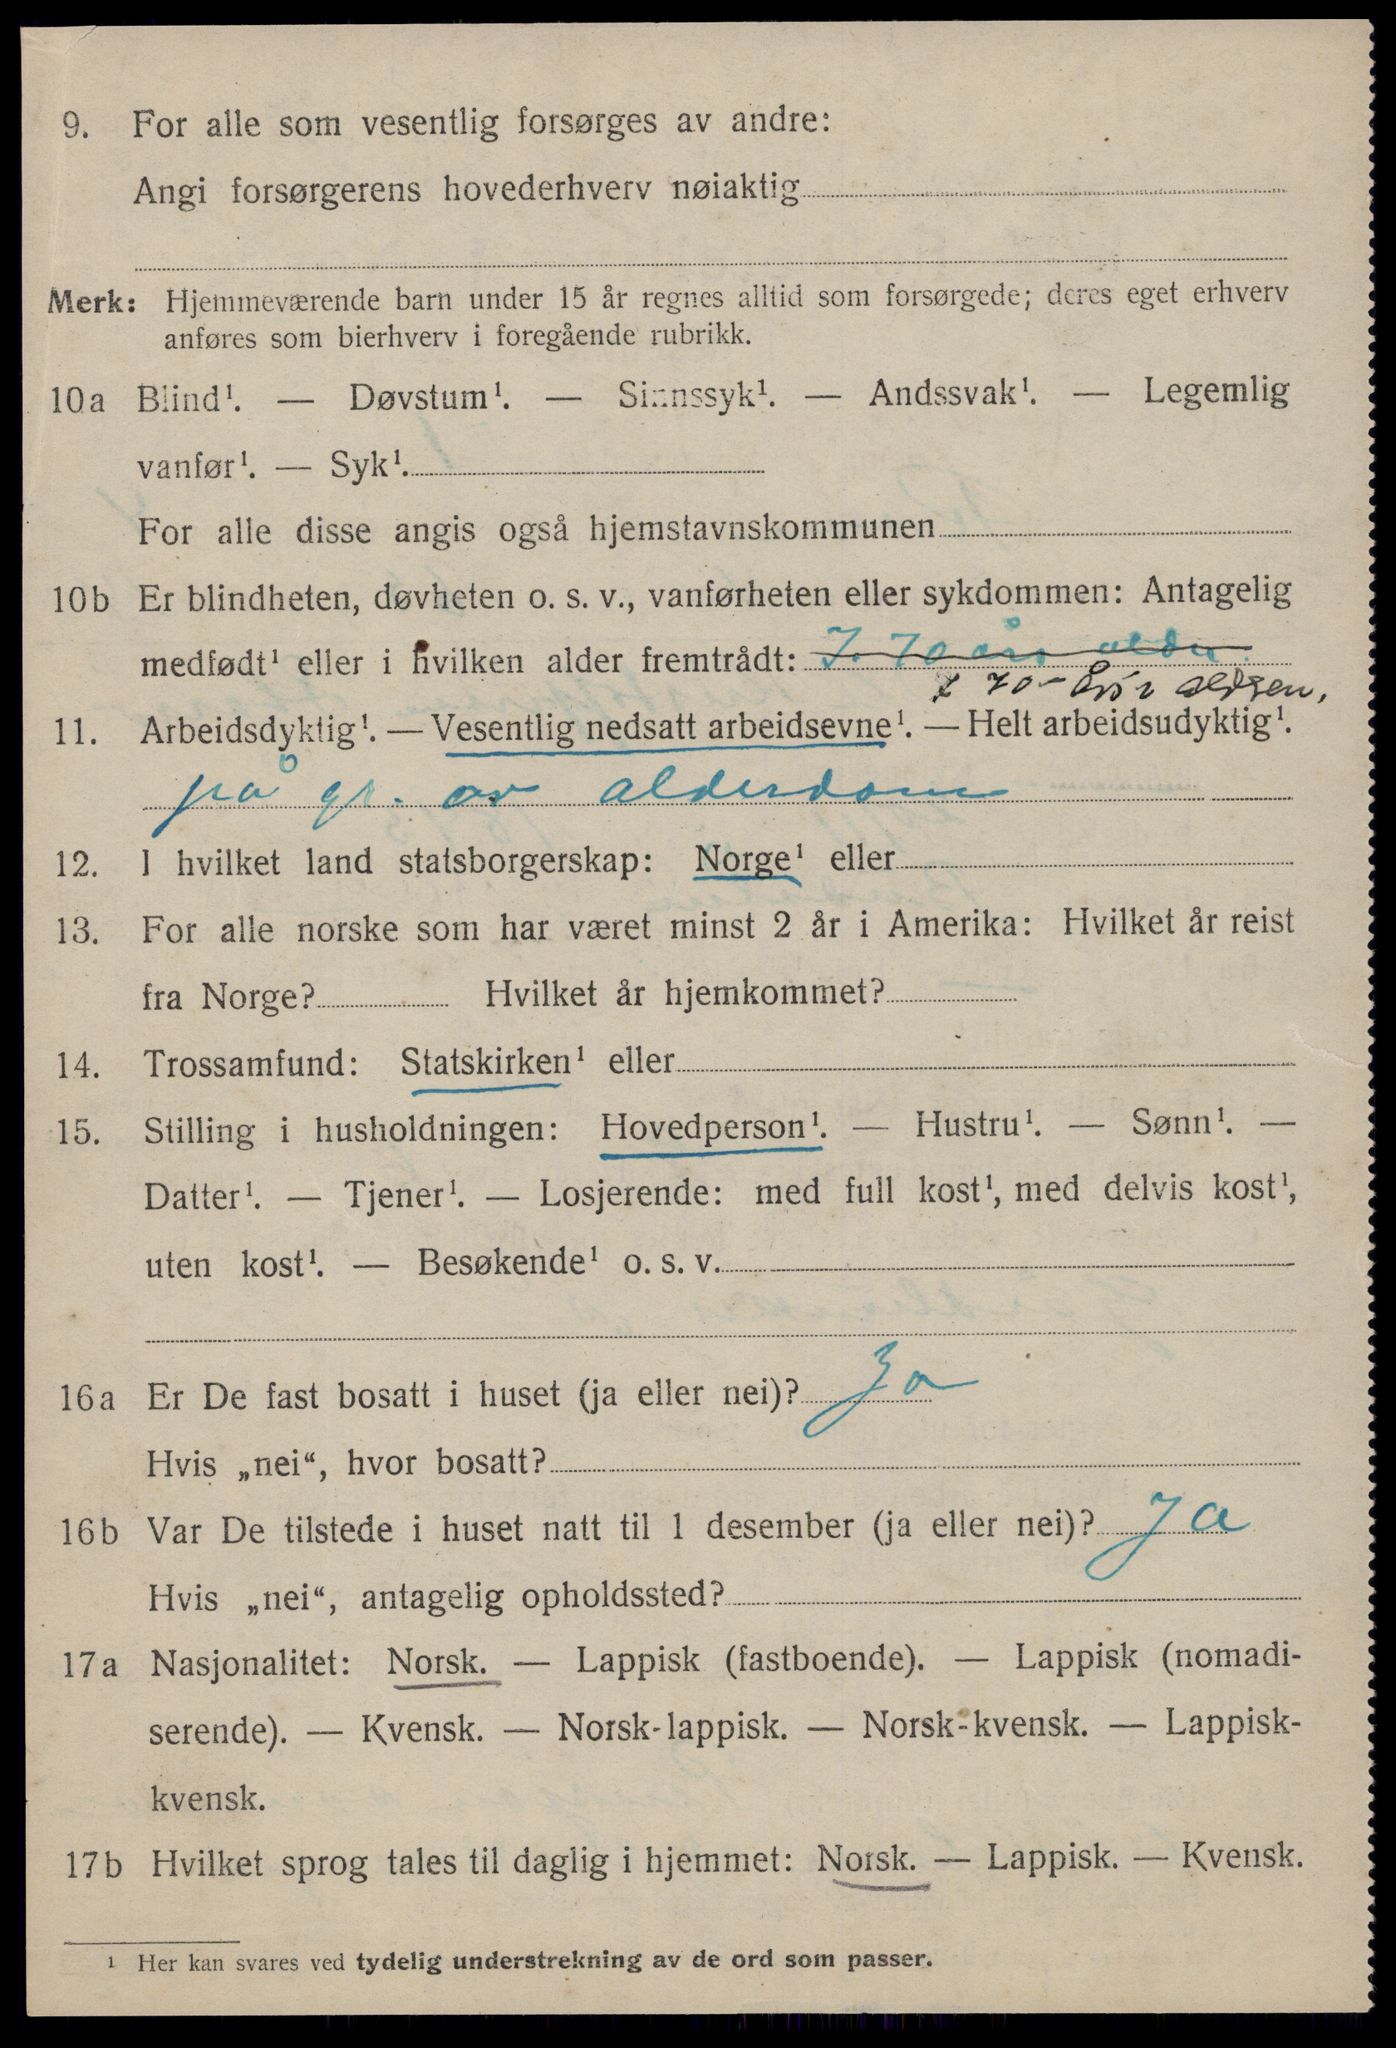 9. For alle som vesentlig forsørges av andre:
Angi forsørgerens hovederhverv nøiaktig
Merk: Hjemmeværende barn under 15 år regnes alltid som forsørgede; deres eget erhverv
anføres som bierhverv i foregående rubrikk.
10a Blind¹. — Døvstum¹. — Sinnssyk¹. — Andssvak¹. — Legemlig
vanfør¹. — Syk¹.
For alle disse angis også hjemstavnskommunen
10b Er blindheten, døvheten o. s. v., vanførheten eller sykdommen: Antagelig
medfødt¹ eller i hvilken alder fremtrådt: I. 70 års alder.
I 70-års alderen.
11. Arbeidsdyktig¹. — Vesentlig nedsatt arbeidsevne¹. — Helt arbeidsudyktig¹.
på gr. av alderdom
12. I hvilket land statsborgerskap: Norge¹ eller
13. For alle norske som har været minst 2 år i Amerika: Hvilket år reist
fra Norge? Hvilket år hjemkommet?
14. Trossamfund: Statskirken¹ eller
15. Stilling i husholdningen: Hovedperson¹. — Hustru¹. — Sønn¹. —
Datter¹. — Tjener¹. — Losjerende: med full kost¹, med delvis kost¹,
uten kost¹. — Besøkende¹ o. s. v.
16a Er De fast bosatt i huset (ja eller nei)? Ja
Hvis „nei“, hvor bosatt?
16b Var De tilstede i huset natt til 1 desember (ja eller nei)? Ja
Hvis „nei“, antagelig opholdssted?
17a Nasjonalitet: Norsk. — Lappisk (fastboende). — Lappisk (nomadi-
serende). — Kvensk. — Norsk-lappisk. — Norsk-kvensk. — Lappisk-
kvensk.
17b Hvilket sprog tales til daglig i hjemmet: Norsk. — Lappisk. — Kvensk.
¹ Her kan svares ved tydelig understrekning av de ord som passer.